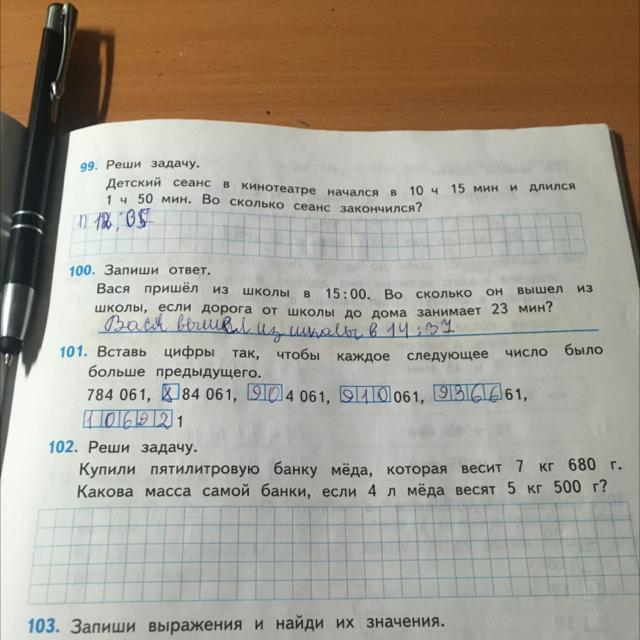 99. Реши задачу.
Детский сеанс в кинотеатре начался в 10 ч 15 мин и длился
1 ч 50 мин. Во сколько сеанс закончился?
1) 12:05
100. Запиши ответ.
Вася пришёл из школы в 15:00. Во сколько он вышел из
школы, если дорога от школы до дома занимает 23 мин?
Вася вышел из школы в 14:37
101. Вставь цифры так, чтобы каждое следующее число было
больше предыдущего.
784 061, 884 061, 904 061, 910 061, 936661,
106921
102. Реши задачу.
Купили пятилитровую банку мёда, которая весит 7 кг 680 г.
Какова масса самой банки, если 4 л мёда весят 5 кг 500 г?
103. Запиши выражения и найди их значения.